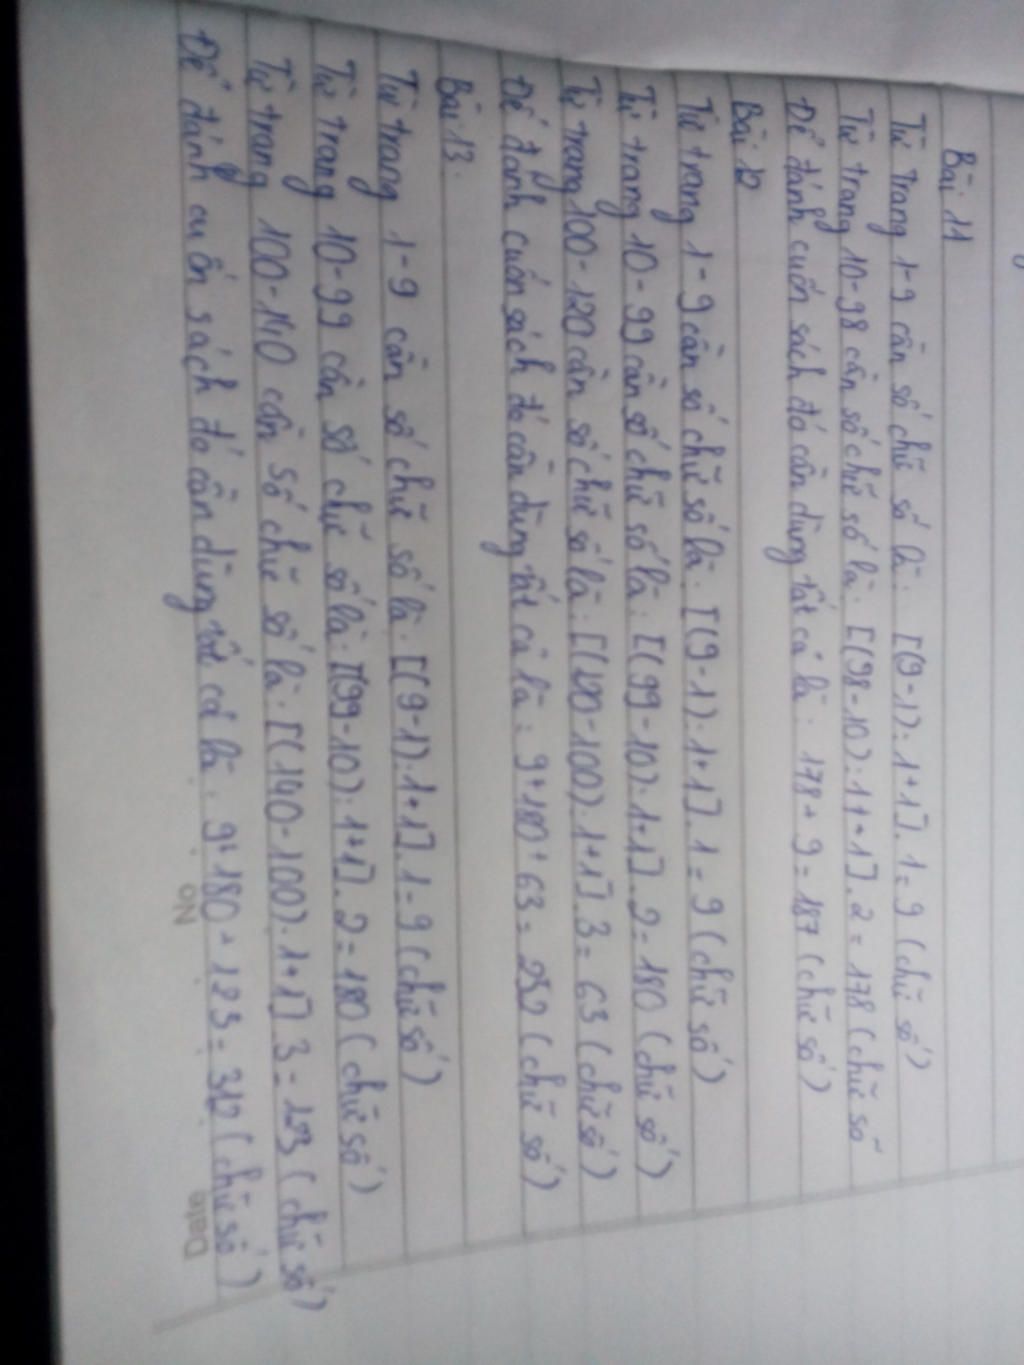 Bài 11
Từ trang 1-9 cần số chữ số là: [(9-1):1+1].1=9 (chữ số)
Từ trang 10-98 cần số chữ số là: [(98-10):1+1].2=178 (chữ số
Để đánh cuốn sách đó cần dùng tất cả là: 178+9=187 (chữ số)
Bài 12
Từ trang 1-9 cần số chữ số là: [(9-1):1+1].1=9 (chữ số)
Từ trang 10-99 cần số chữ số là: [(99-10):1+1].2=180 (chữ số)
Từ trang 100-120 cần số chữ số là: [(120-100):1+1].3=63 (chữ số)
Để đánh cuốn sách đó cần dùng tất cả là: 9+180+63=252 (chữ số)
Bài 13.
Từ trang 1-9 cần số chữ số là: [(9-1):1+1].1=9 (chữ số)
Từ trang 10-99 cần số chữ số là: [(99-10):1+1].2=180 (chữ số)
Từ trang 100-140 cần số chữ số là: [(140-100):1+1].3=123 (chữ số)
Để đánh cuốn sách đó cần dùng tất cả là: 9+180+123=312 (chữ số)
No
Date